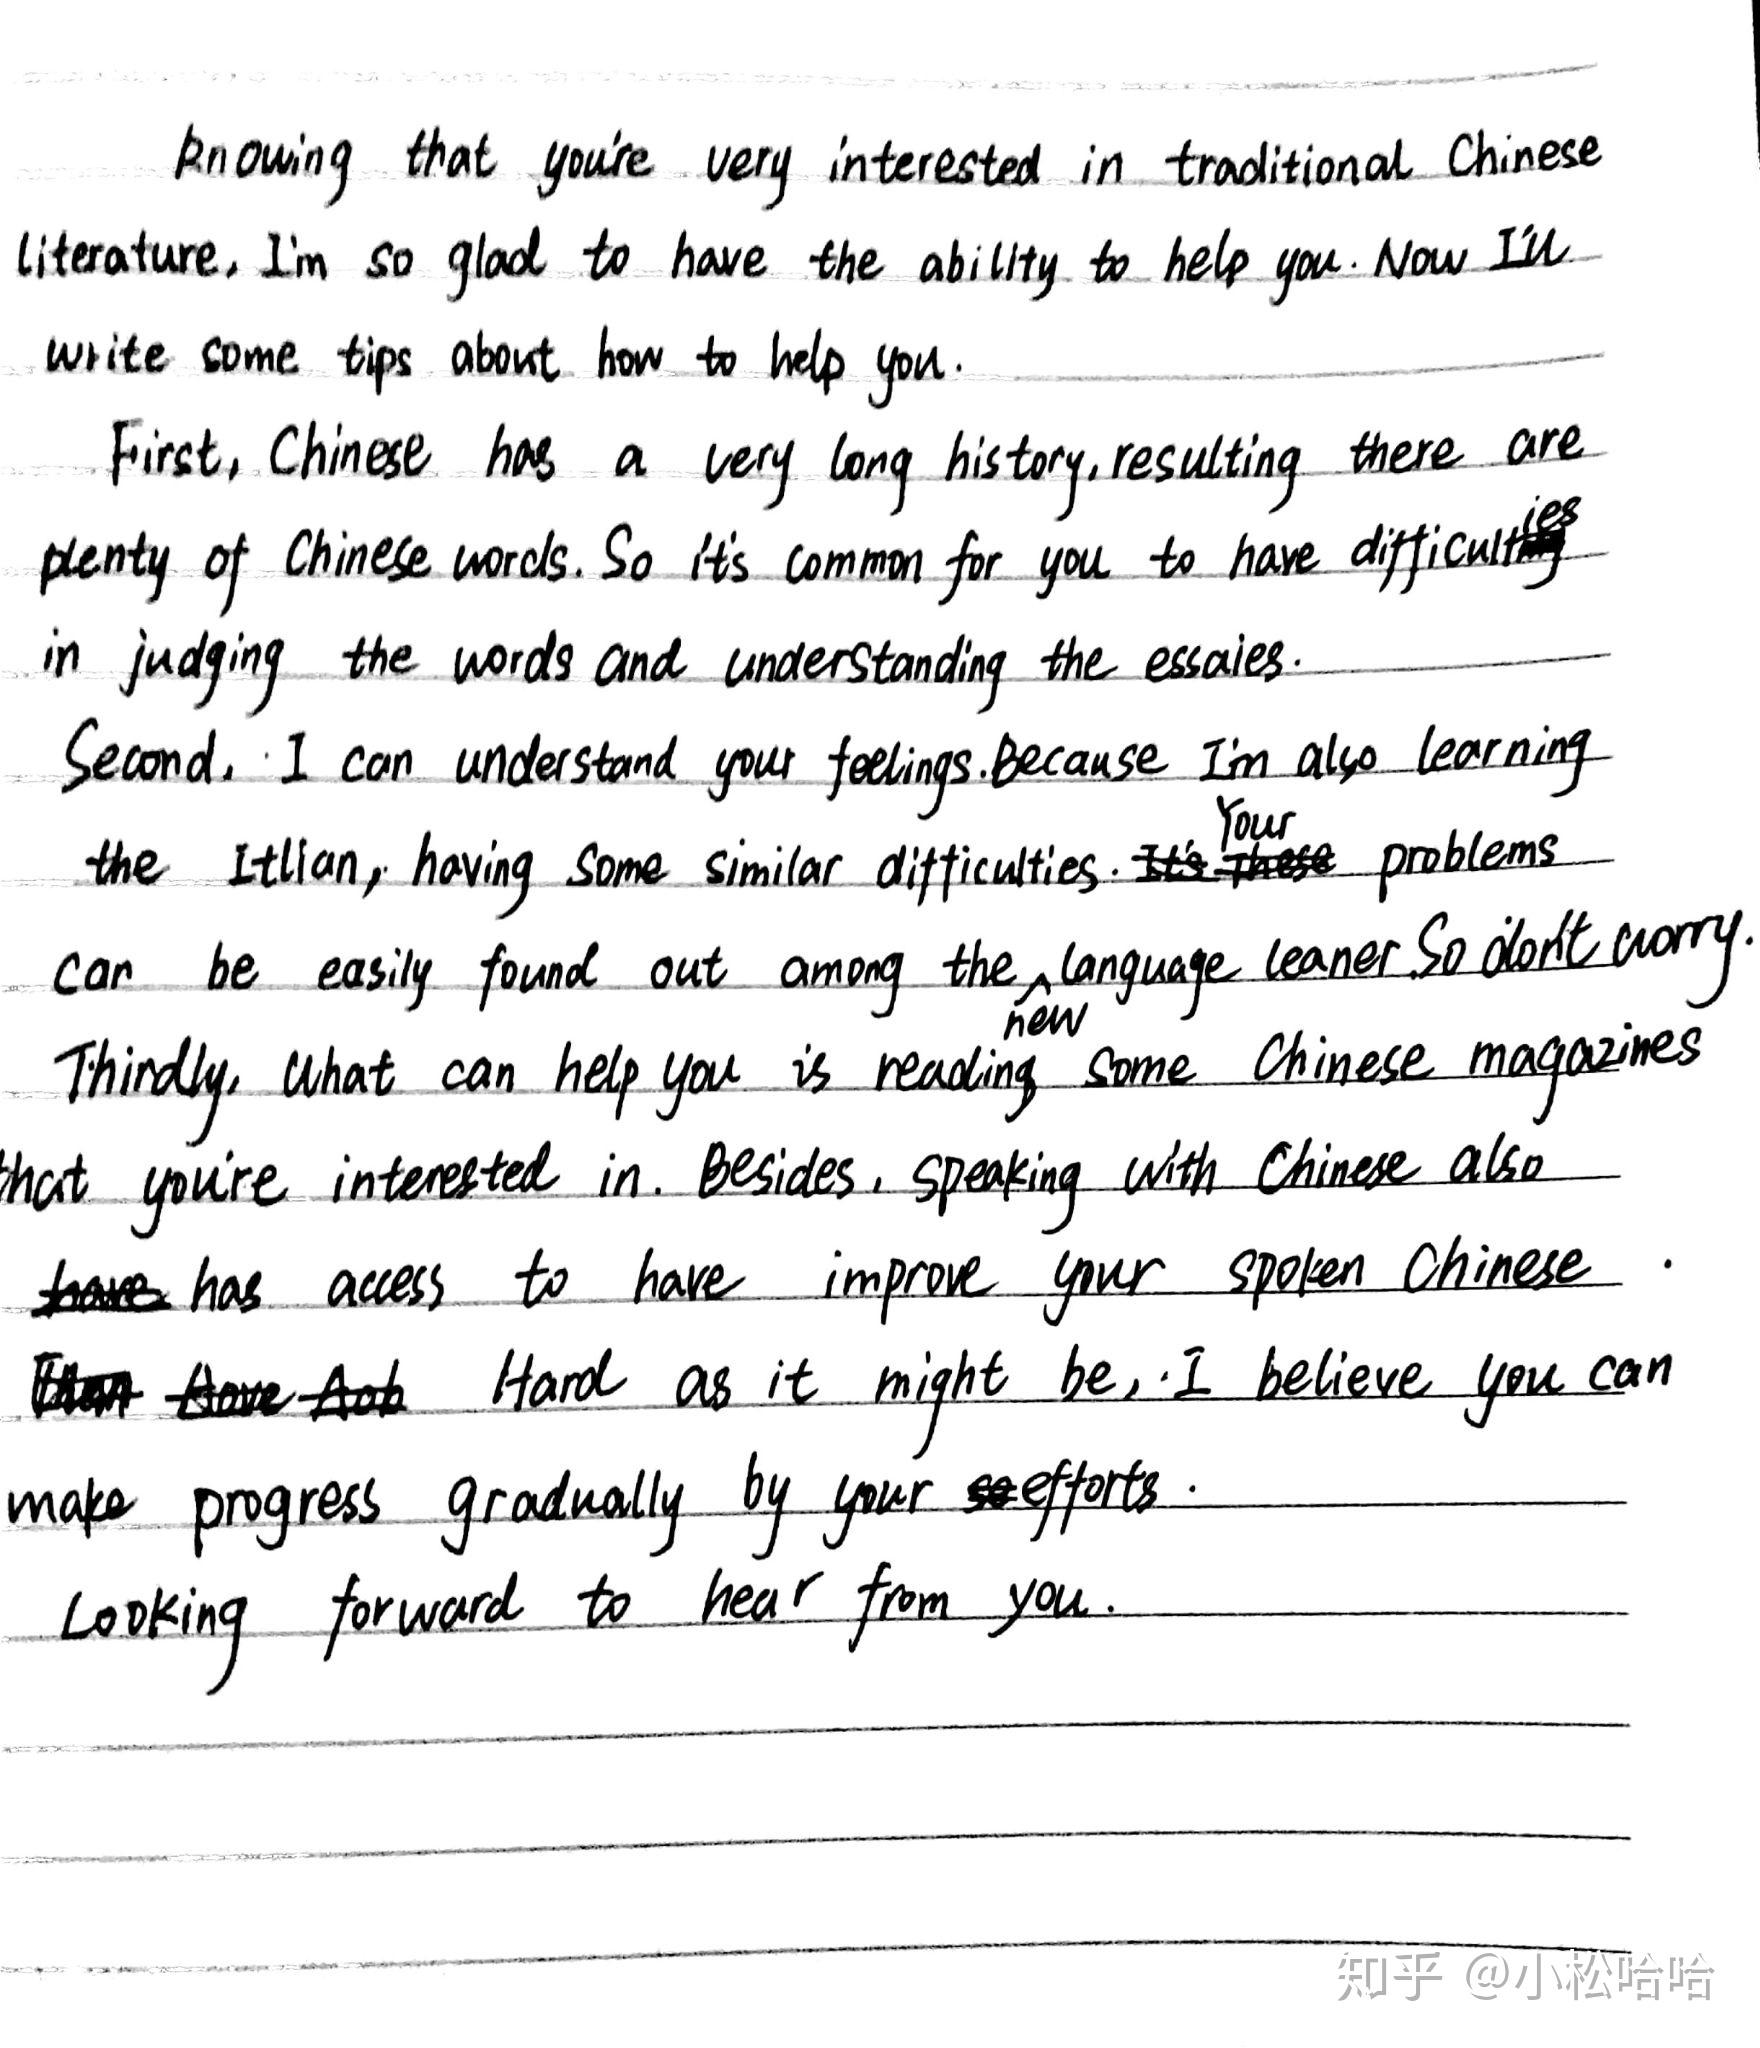 Knowing that you're very interested in traditional Chinese
literature, I'm so glad to have the ability to help you. Now I'll
write some tips about how to help you.
First, Chinese has a very long history, resulting there are
plenty of Chinese words. So it's common for you to have difficulties
in judging the words and understanding the essaies.
Second, I can understand your feelings. Because I'm also learning
the Itlian, having some similar difficulties. It's These Your problems
can be easily found out among the new language leaner. So don't worry.
Thirdly, what can help you is reading some Chinese magazines
that you're interested in. Besides, speaking with Chinese also
have has access to have improve your spoken Chinese.
Hard as it might be, I believe you can
make progress gradually by your se efforts.
Looking forward to hear from you.
知乎 @小松哈哈